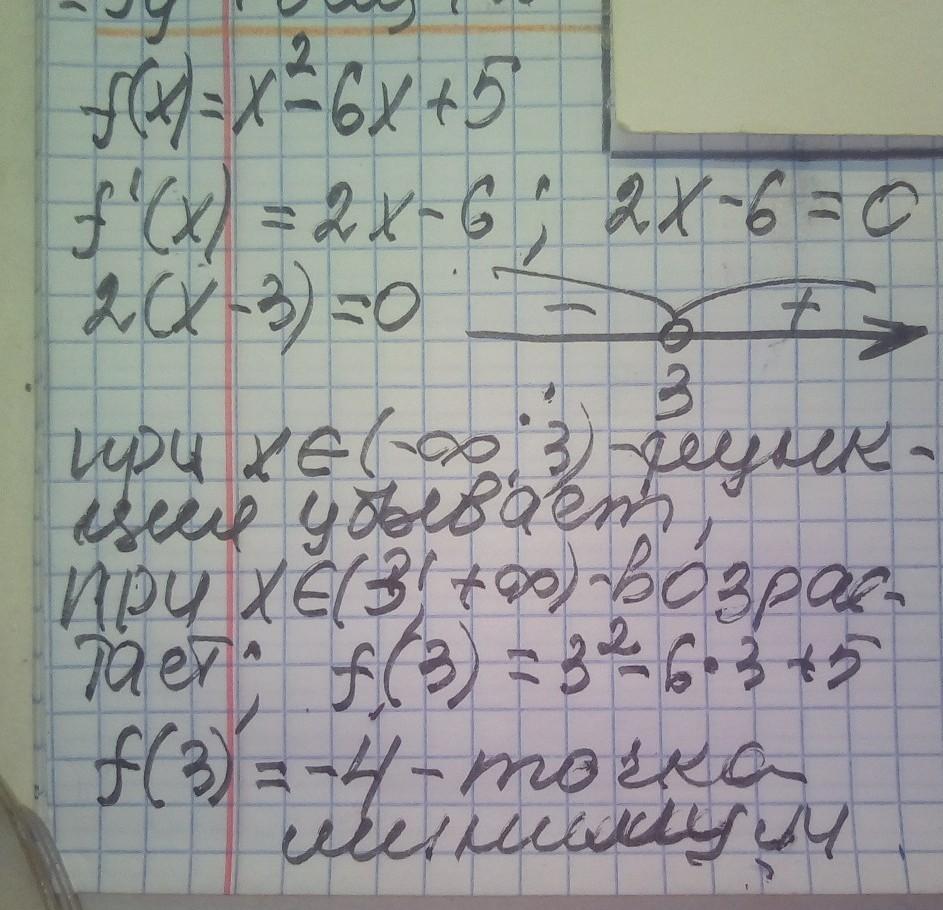 f(x)=x²-6x+5
f'(x)=2x-6; 2x-6=0
2(x-3)=0
- +
3
при x∈(-∞;3)-функк-
ция убывает,
при x∈(3;+∞)-возрас-
тает; f(3)=3²-6·3+5
f(3)=-4-точка
минимум